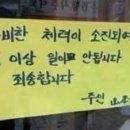 비한 체력이 소진되어
이상 일이 안됩니다
죄송합니다
주인